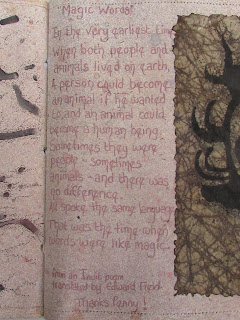 "Magic Words"
In the very earliest time
when both people and
animals lived on earth,
A person could become
an animal if he wanted
to and an animal could
become a human being.
Sometimes they were
people - sometimes
animals - and there was
no difference.
All spoke the same language
That was the time when
words were like magic.
from an Inuit poem
translated by Edward Field
Thanks Penny!